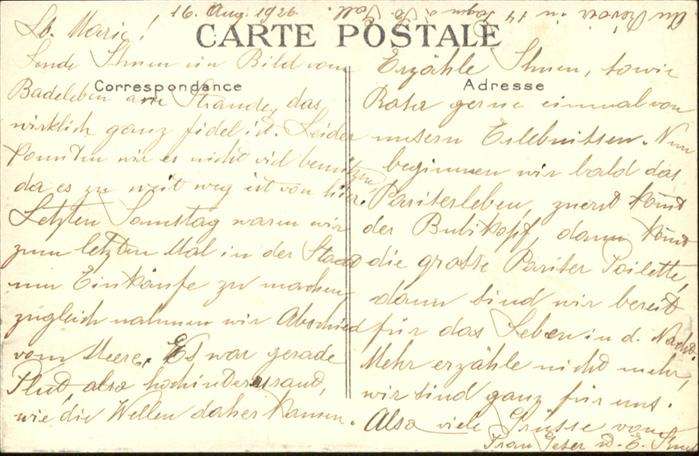 Au Revoir in 14 Tagen à St. Gall.
16. Aug. 1926
Lb. Marie!
CARTE POSTALE
Correspondance
Sende Ihnen ein Bild vom
Badeleben am Strande, das
wirklich ganz fidel ist. Leider
konnten wir es nicht viel benutzen,
da es zu weit weg ist von hier.
Letzten Samstag waren wir
zum letzten Mal in der Stadt
um Einkäufe zu machen,
zugleich nahmen wir Abschied
vom Meere. Es war gerade
Flut, also hochinteressand,
wie die Wellen daher kamen.
Adresse
Erzähle Ihnen, sowie
Rosa gerne einmal von
unsern Erlebnissen. Nun
beginnen wir bald das
Pariserleben, zuerst kömt
der Bubikopf, dann kömt
die grosse Pariser Toilette,
dann sind wir bereit
für das Leben in d. Nacht.
Mehr erzähle nicht mehr,
wir sind ganz für uns.
Also viele Grüsse von
Frau Peter u. E.